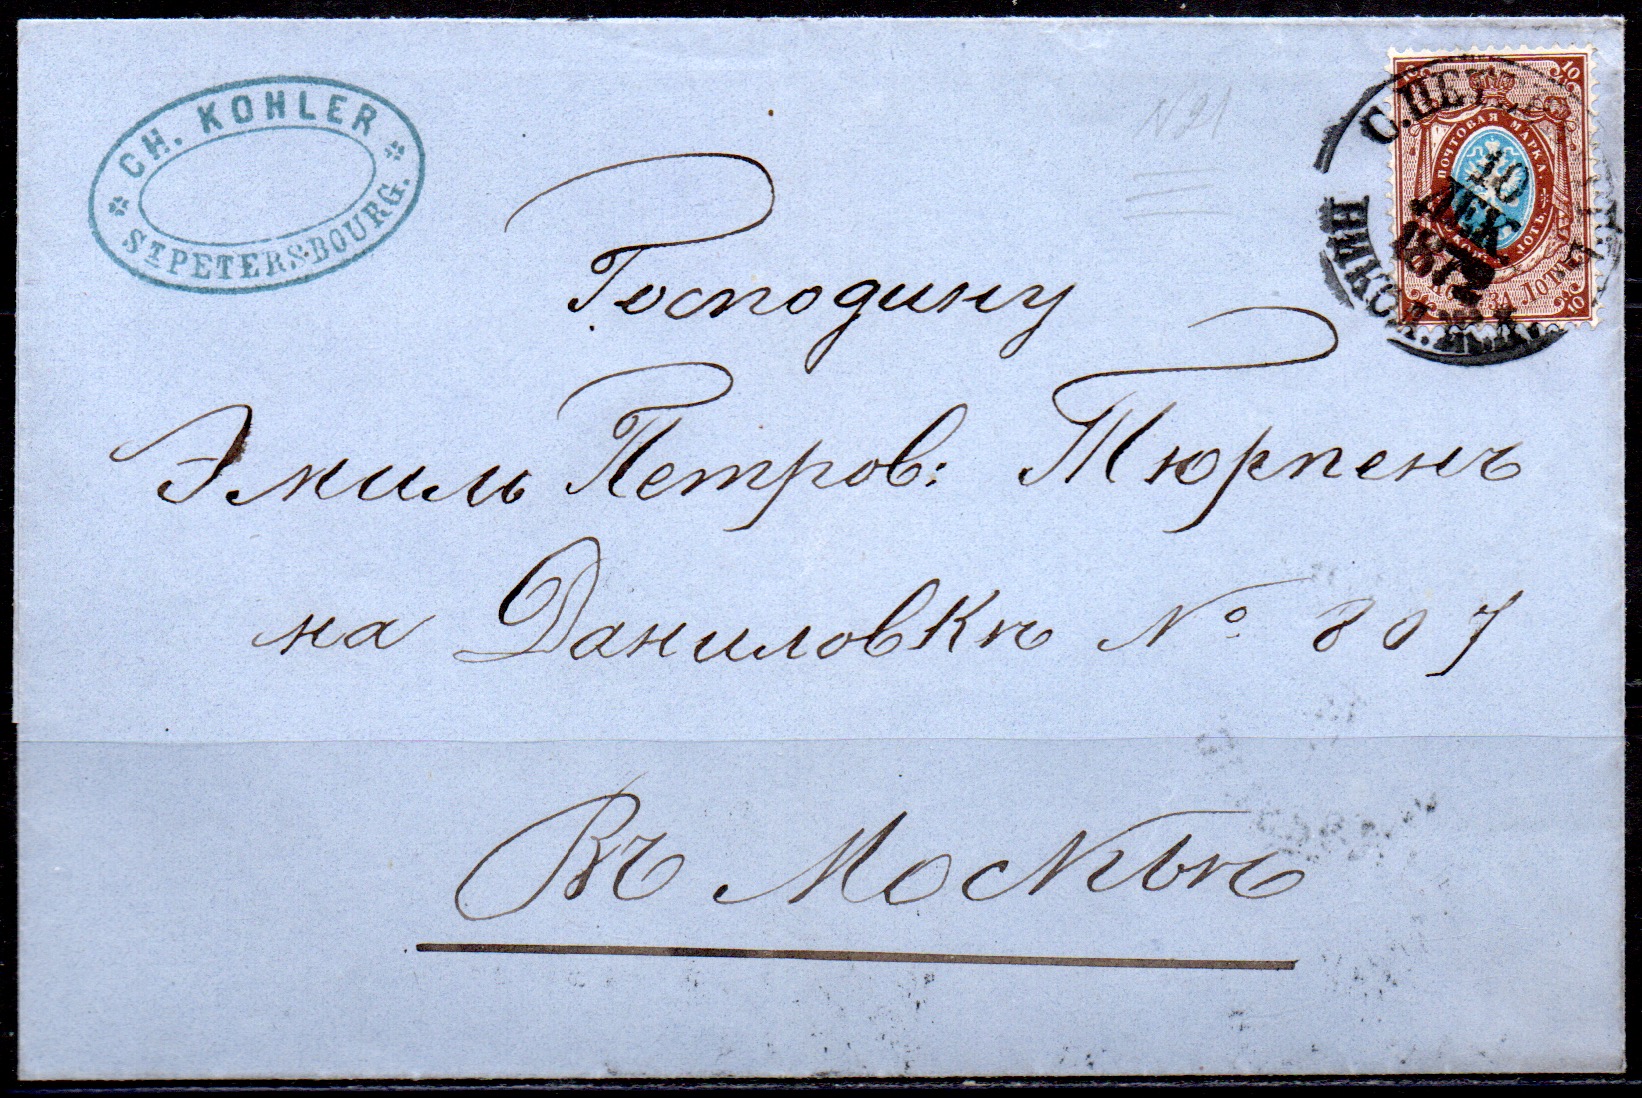 CH. KOHLER
ST PETERSBOURG.
N 21
10
10
ПОЧТОВАЯ МАРКА
ЗА ЛОТЪ
10
С.ПЕТ
10
ДЕК
1872
НИКОЛ.
Господину
Эмиль Петров: Тюрпенъ
на Даниловкѣ № 807
Въ Москвѣ